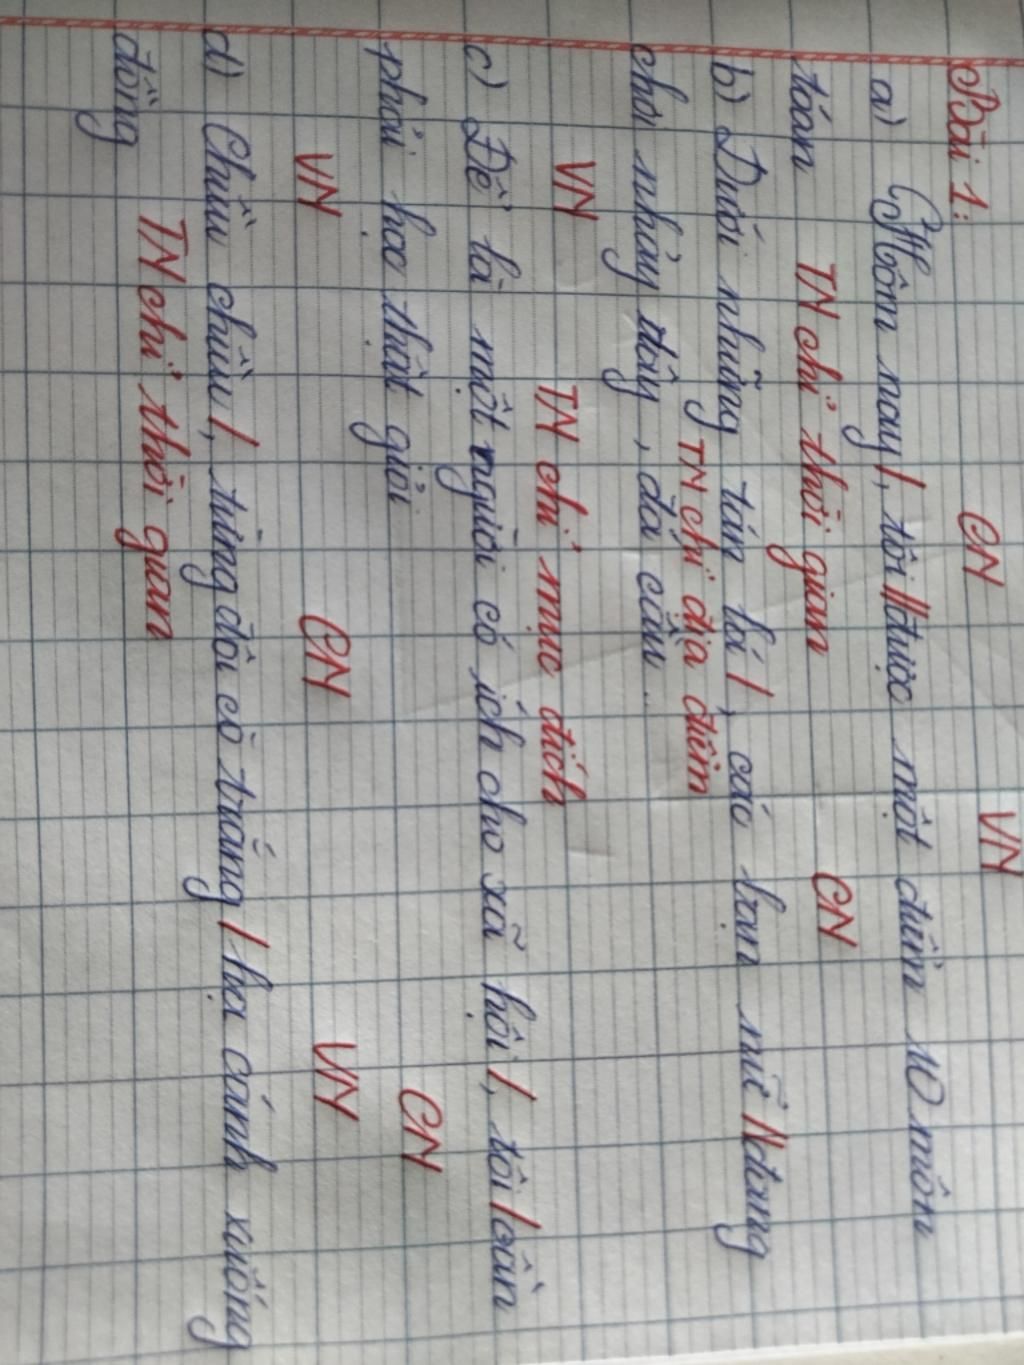 Bài 1:
CN VN
a) Hôm nay /, tôi // được một điểm 10 môn
toán
TN chỉ thời gian CN
b) Dưới những tán lá /, các bạn nữ // đang
TN chỉ địa điểm
chơi nhảy dây, đá cầu.
VN TN chỉ mục đích CN
c) Để là một người có ích cho xã hội /, tôi / cần
phải học thật giỏi
VN CN VN
d) Chiều chiều /, từng đôi cò trắng / hạ cánh xuống
TN chỉ thời gian
đồng